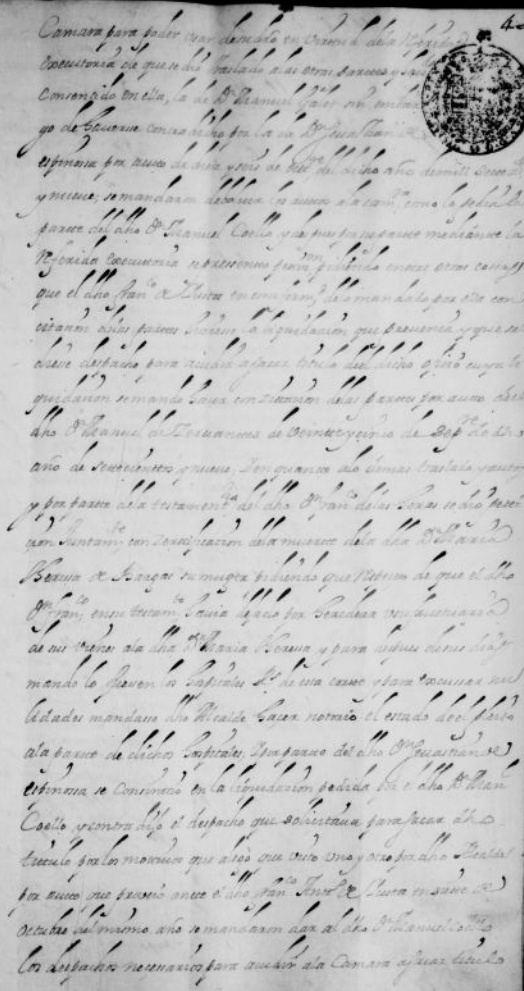 4
Camara para poder usar de el en virtud de la Referida
executoria de que se dio traslado a las otras partes y
consentido en ella, la de Dn Manuel sin embar
go de haverse contradicho por la de Dn Sevastian de
espinosa por auto de diez y seis de del dicho año de mill setecientos
y nueve, se mandaron debolver los autos a la cama como lo pedia la
parte del dho Dn Manuel Coello, y por su parte mediante la
Referida executoria se presento pidiendo entre otras cosas
que el dho Franco de Llusta en de lo mandado por ella con
citacion de las partes hiciese la liquidacion que prevenia y que se
diese despacho para acudir a sacar titulo del dicho oficio cuya li
quidacion se mando hacer con zitacion de las partes por auto del
dho Dn Manuel de Zervantes de veinte y cinco de Sepre de dho
año de setecientos y nueve, y en quanto a lo demas traslado y autos
y por parte de la testamentria del dho Dn Franco de las Heras se dio peti
cion juntamte con zertificacion de la muerte de la dha Da Maria
Theresa de Bargas su muger pidiendo que respecto de que el dho
Dn Franco en su testamto havia dejado por heredera usufructuaria
de sus vienes a la dha Da Maria Theresa y para despues de sus dias
mando lo gozen los hospitales de esta corte y para excusar nu
lidades mandase dho Alcalde hacer notorio el estado de el pleito
a la parte de dichos hospitales, y por parte del dho Dn Sevastian de
espinosa se consintio en la liquidacion pedida por el dho Dn Manl
Coello, y contradijo el despacho que solicitava para sacar dho
titulo por los motivos que alego que visto uno y otro por dho Alcalde
por auto que proveio ante el dho Franco Anto de Llusta en siete de
octubre del mismo año se mandaron dar al dho Dn Manuel Coello
los despachos necesarios para acudir a la Camara a sacar titulo